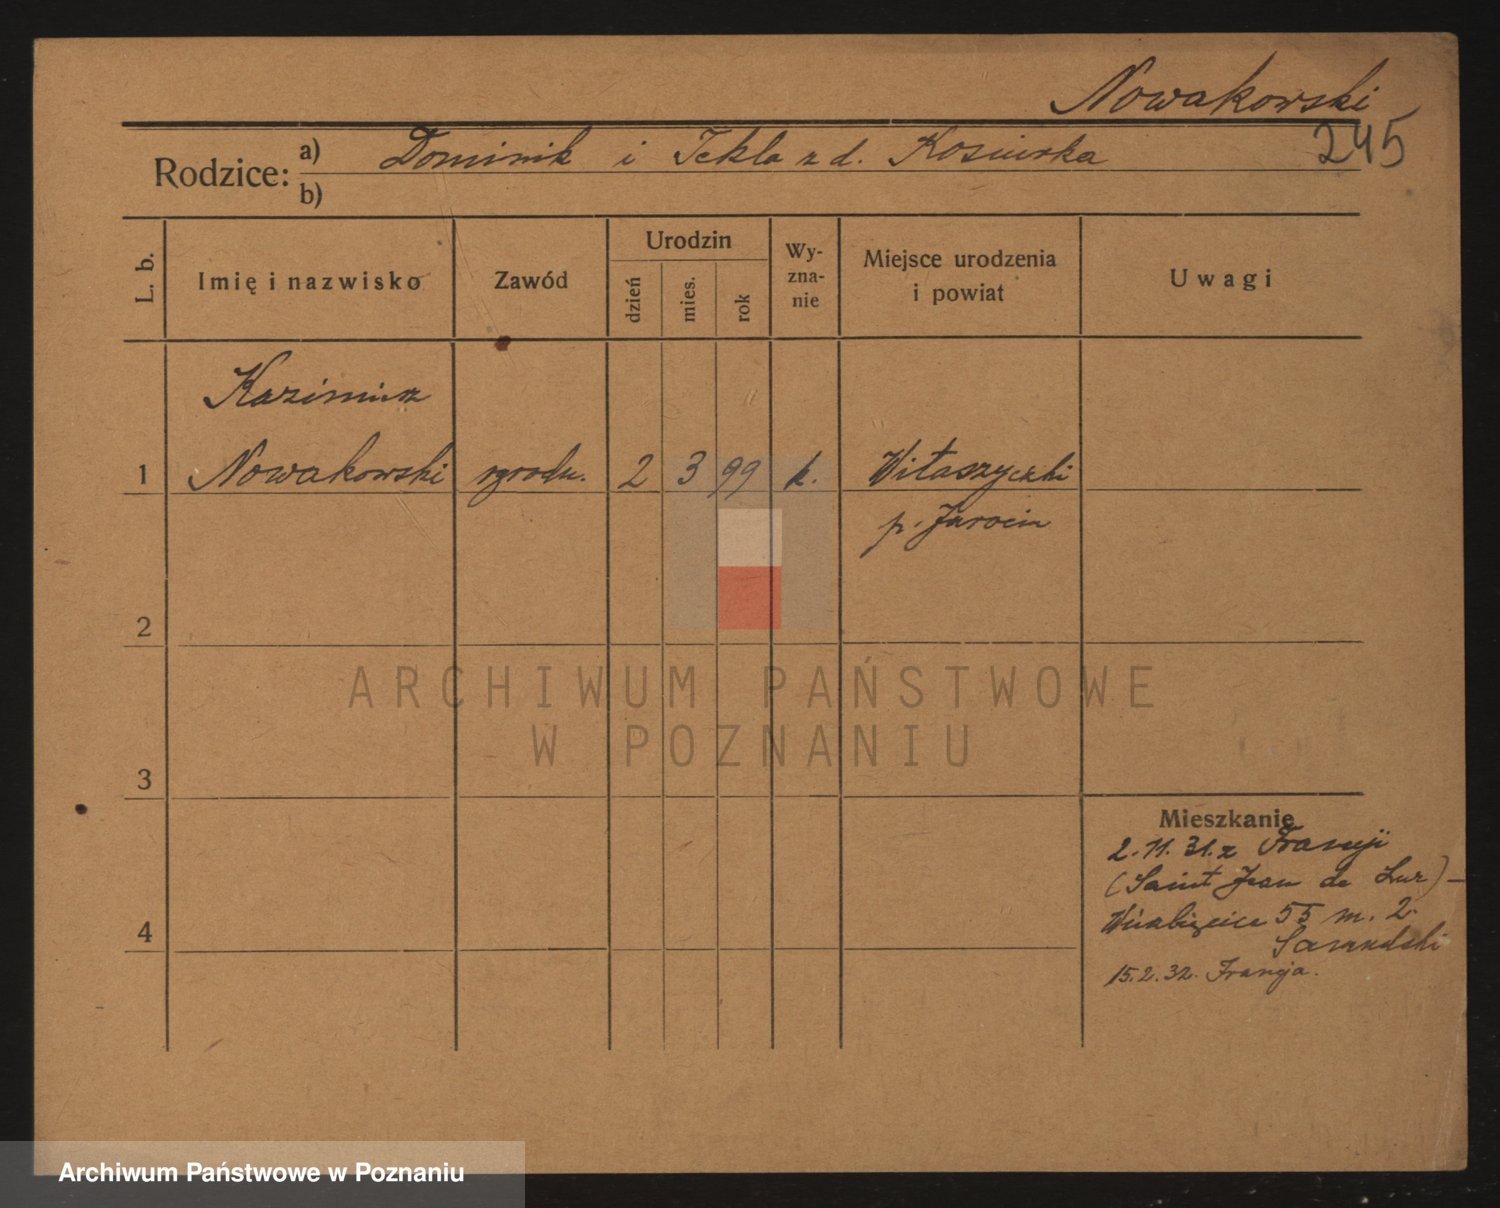 Nowakowski
245
Rodzice: a) Dominik i Tekla z d. Kosińska
b)
L. b.
Imię i nazwisko
Zawód
Urodzin
dzień
mies.
rok
Wy-
zna-
nie
Miejsce urodzenia
i powiat
Uwagi
Kazimierz
1 Nowakowski ogrodn. 2 3 99 k. Witaszyczki
p. Jarocin
2
3
4
Mieszkanie
2.11.31. z Francji
(Saint Jean de Luz) –
55 m. 2.
15.2.32. Francja.
ARCHIWUM PAŃSTWOWE
W POZNANIU
Archiwum Państwowe w Poznaniu